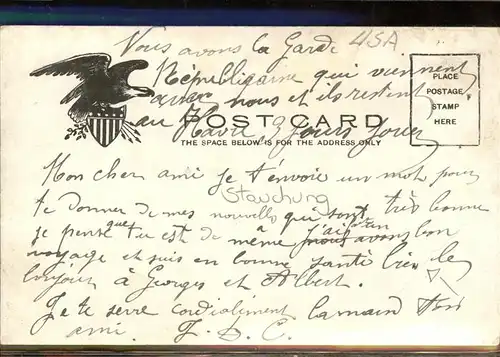 Vous avons la Garde USA
Républicaine qui viennent
avec nous et ils restent
au Havre 3 jours pour
POST CARD
THE SPACE BELOW IS FOR THE ADDRESS ONLY
PLACE
POSTAGE
STAMP
HERE
Mon cher ami je t'envoie un mot pour
Stauchung
te donner de mes nouvelles qui sont très bonne
je pense que tu est de même avons bon
voyage et suis en bonne santé bien le
bonjour à Georges et Albert.
Je te serre cordialement la main ton
ami. F. D. C.